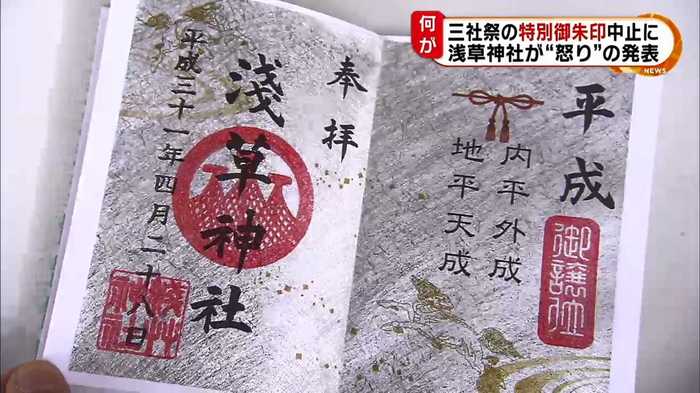 何が
三社祭の特別御朱印中止に
浅草神社が“怒り”の発表
NEWS
平成
御譲位
内平外成
地平天成
奉拝
淺草神社
平成三十一年四月二十八日